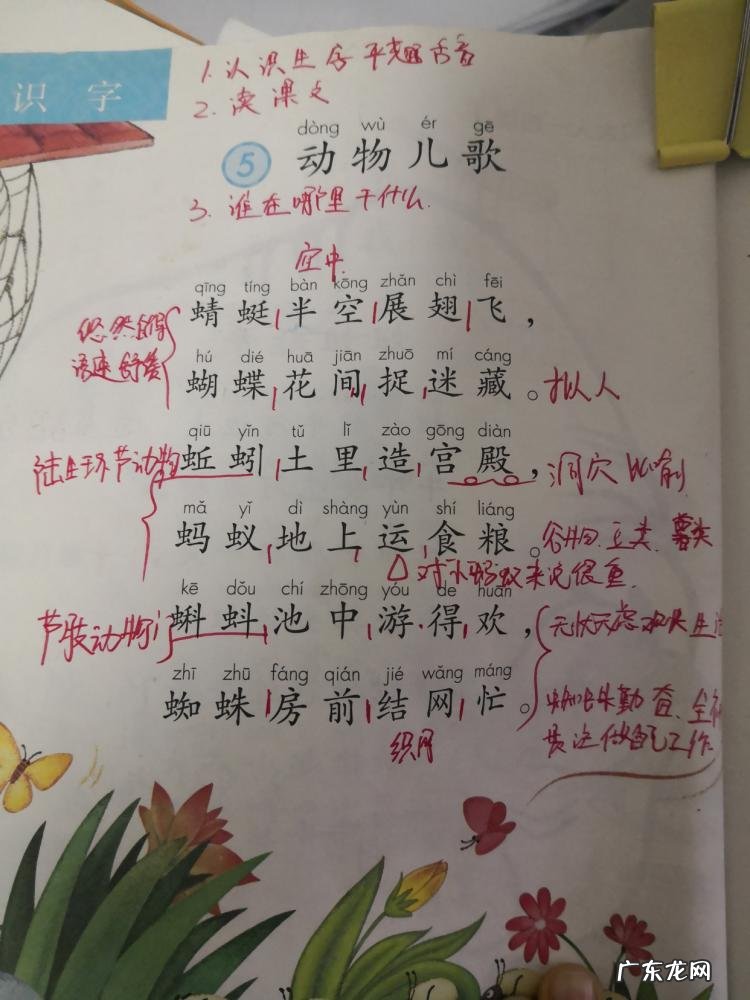 1.认识生字 平翘舌音
识字
2.读课文
dòng wù ér gē
5 动物儿歌
3.谁在哪里干什么.
空中.
qīng tíng bàn kōng zhǎn chì fēi
蜻蜓半空展翅飞，
悠然自得
语速舒缓
hú dié huā jiān zhuō mí cáng
蝴蝶花间捉迷藏。拟人
qiū yǐn tǔ lǐ zào gōng diàn
陆生环节动物 蚯蚓土里造宫殿，洞穴 比喻
mǎ yǐ dì shàng yùn shí liáng
蚂蚁地上运食粮。谷物.豆类.薯类
△对小蚂蚁来说很重
kē dǒu chí zhōng yóu de huān
节肢动物 蝌蚪池中游得欢，无忧无虑 欢快 生活
zhī zhū fáng qián jié wǎng máng
蜘蛛房前结网忙。蜘蛛勤奋.全神
贯注做自己工作
织网
广东龙网